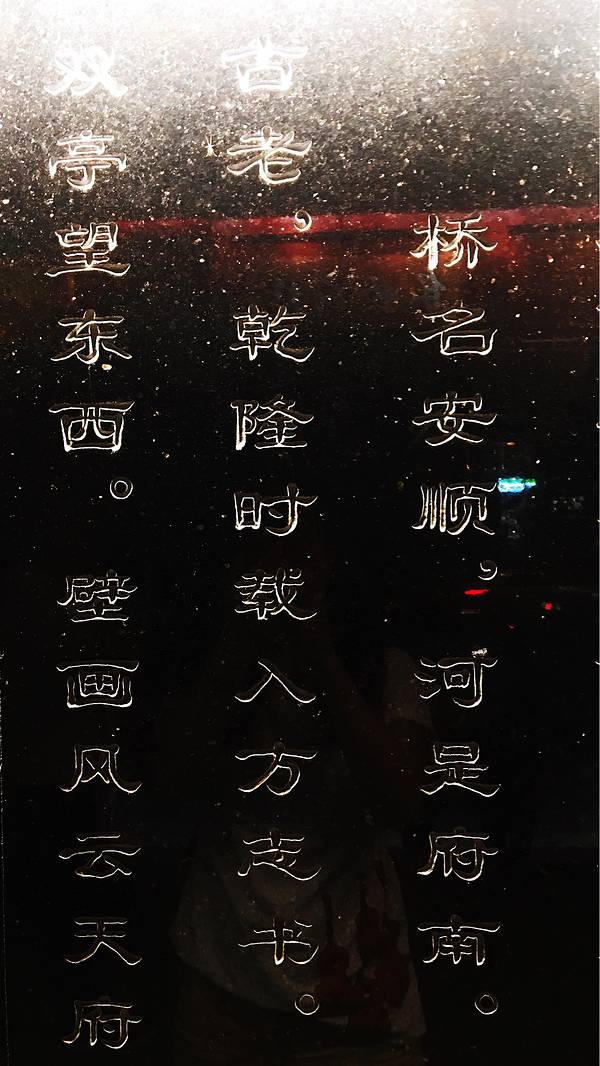 桥名安顺，河是府南。
古老，乾隆时载入方志书。
双亭望东西。壁画风云天府